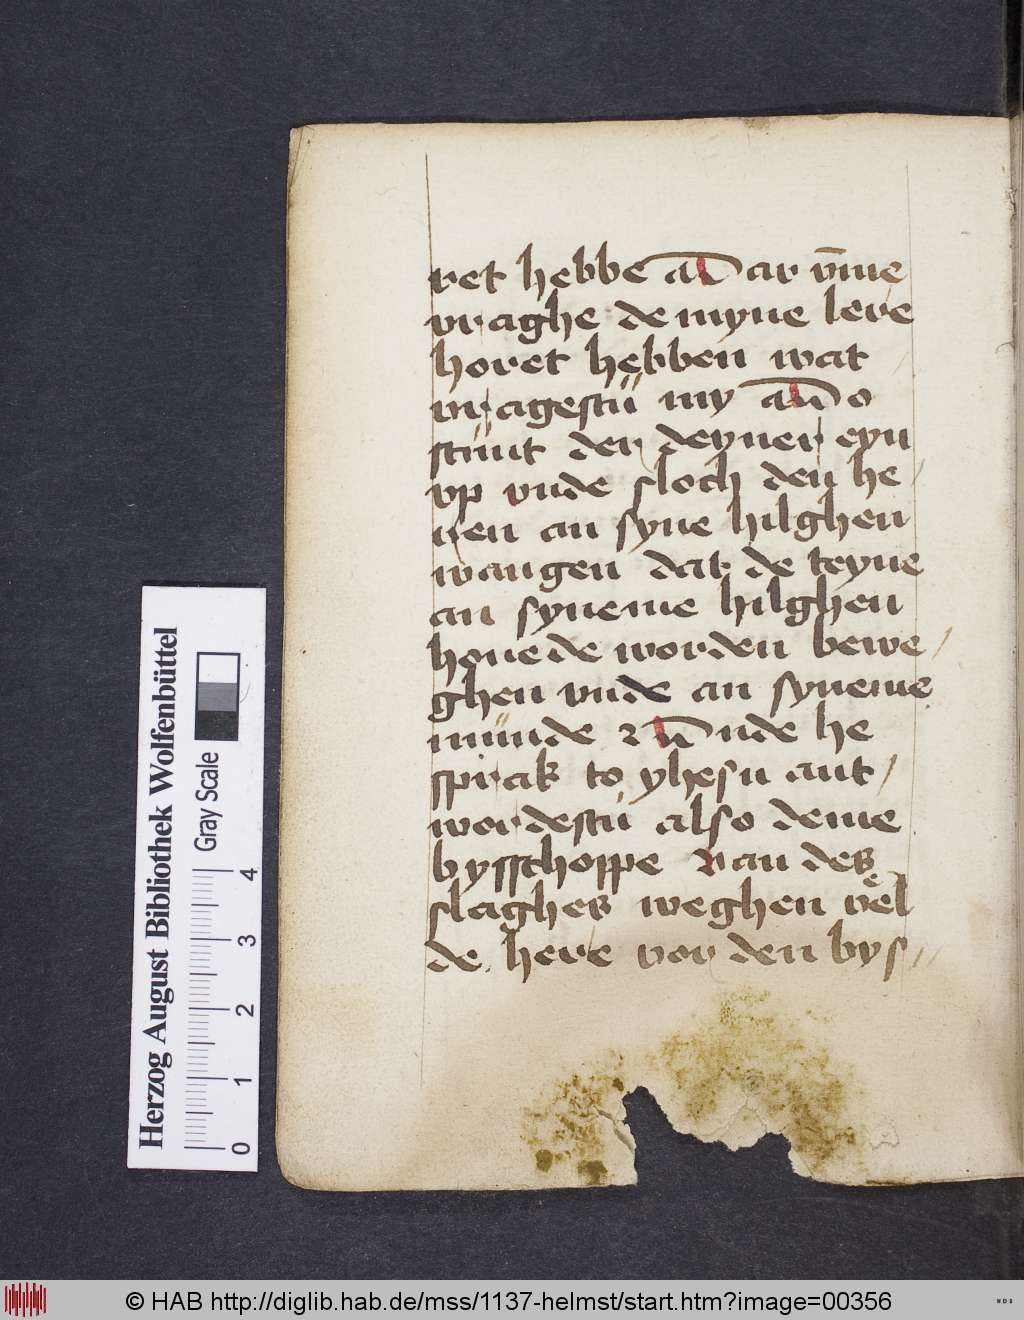 ret hebbe dar v̄me
vraghe de myne lere
horet hebben wat
vragestu my do
stunt der deyner eyn
vp vnde sloch den he
ren an syne hilghen
wangen dat de teyne
an syneme hilghen
houede worden bewe
ghen vnde an syneme
munde vnde he
sprak to yhesu ant
wordestu also deme
bysschoppe van des
slaghes weghen vel
de here vor den bys
Herzog August Bibliothek Wolfenbüttel
Gray Scale
0 1 2 3 4
© HAB http://diglib.hab.de/mss/1137-helmst/start.htm?image=00356